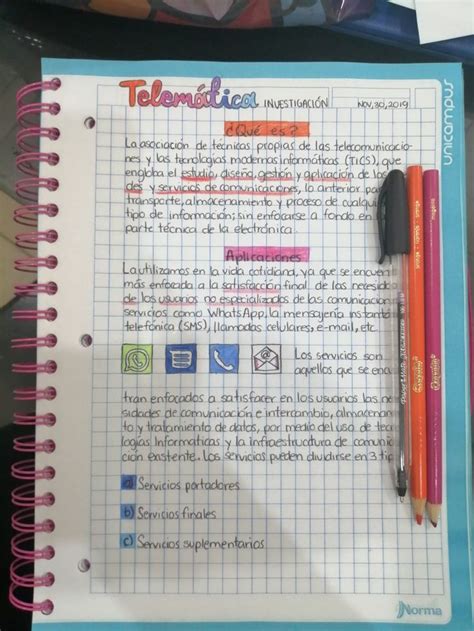 Telemática INVESTIGACIÓN NOV,30,2019
¿Qué es?
La asociación de técnicas propias de las telecomunicacio-
nes y las tecnologías modernas informáticas (TICS), que
engloba el estudio, diseño, gestión y aplicación de las
des y servicios de comunicaciones, lo anterior para
transporte, almacenamiento y proceso de cualquier
tipo de información; sin enfocarse a fondo en
parte técnica de la electrónica.
Aplicaciones
La utilizamos en la vida cotidiana, ya que se encuen
más enfocada a la satisfacción final de las necesida
de los usuarios no especializados de las comunicacion
servicios como WhatsApp, la mensajería instantá
telefónica (SMS), llamadas celulares, e-mail, etc.
Los servicios son
aquellos que se encu
tran enfocados a satisfacer en los usuarios las ne
sidades de comunicación e intercambio, almacenam
to y tratamiento de datos, por medio del uso de tecn
logías Informaticas y la infraestructura de comunic
ción existente. Los servicios pueden dividirse en 3 tip
a) Servicios portadores
b) Servicios finales
c) Servicios suplementarios
unicampus
Norma